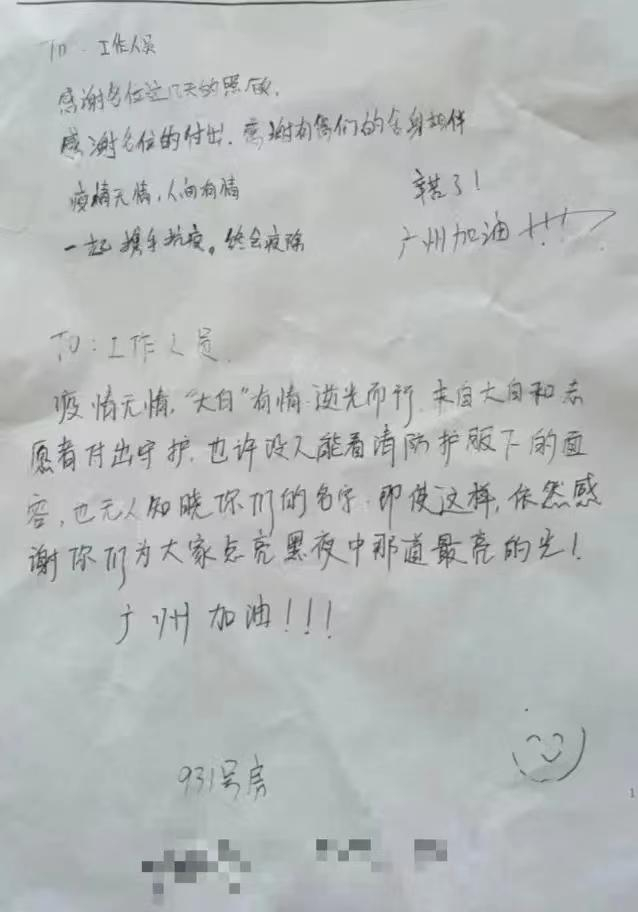 To：工作人员
感谢各位这几天的照顾，
感谢各位的付出，感谢有你们的全身相伴
疫情无情，人间有情
辛苦了！
一起携手抗疫。终会疫除
广州加油！！！
To：工作人员
疫情无情，“大白”有情，逆光而行，来自大白和志
愿者付出守护，也许没人能看清防护服下的面
容，也无人知晓你们的名字，即使这样，依然感
谢你们为大家点亮黑夜中那道最亮的光！
广州加油！！！
931号房
1